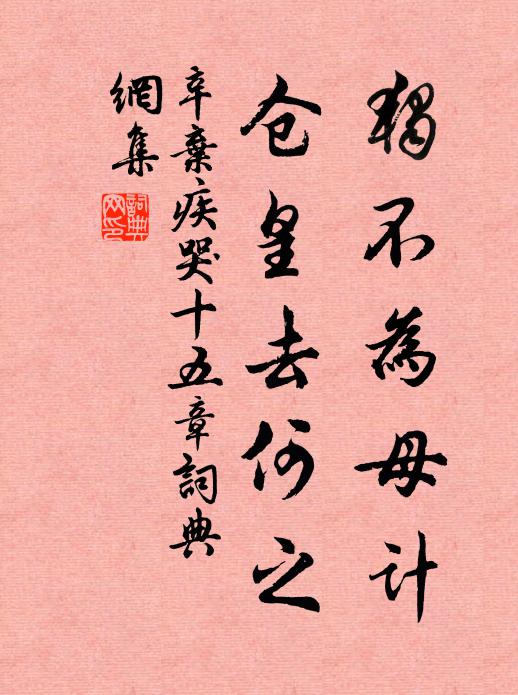 獨不為母計
仓皇去何之
辛棄疾哭十五章詞典
網集
詞典
网印